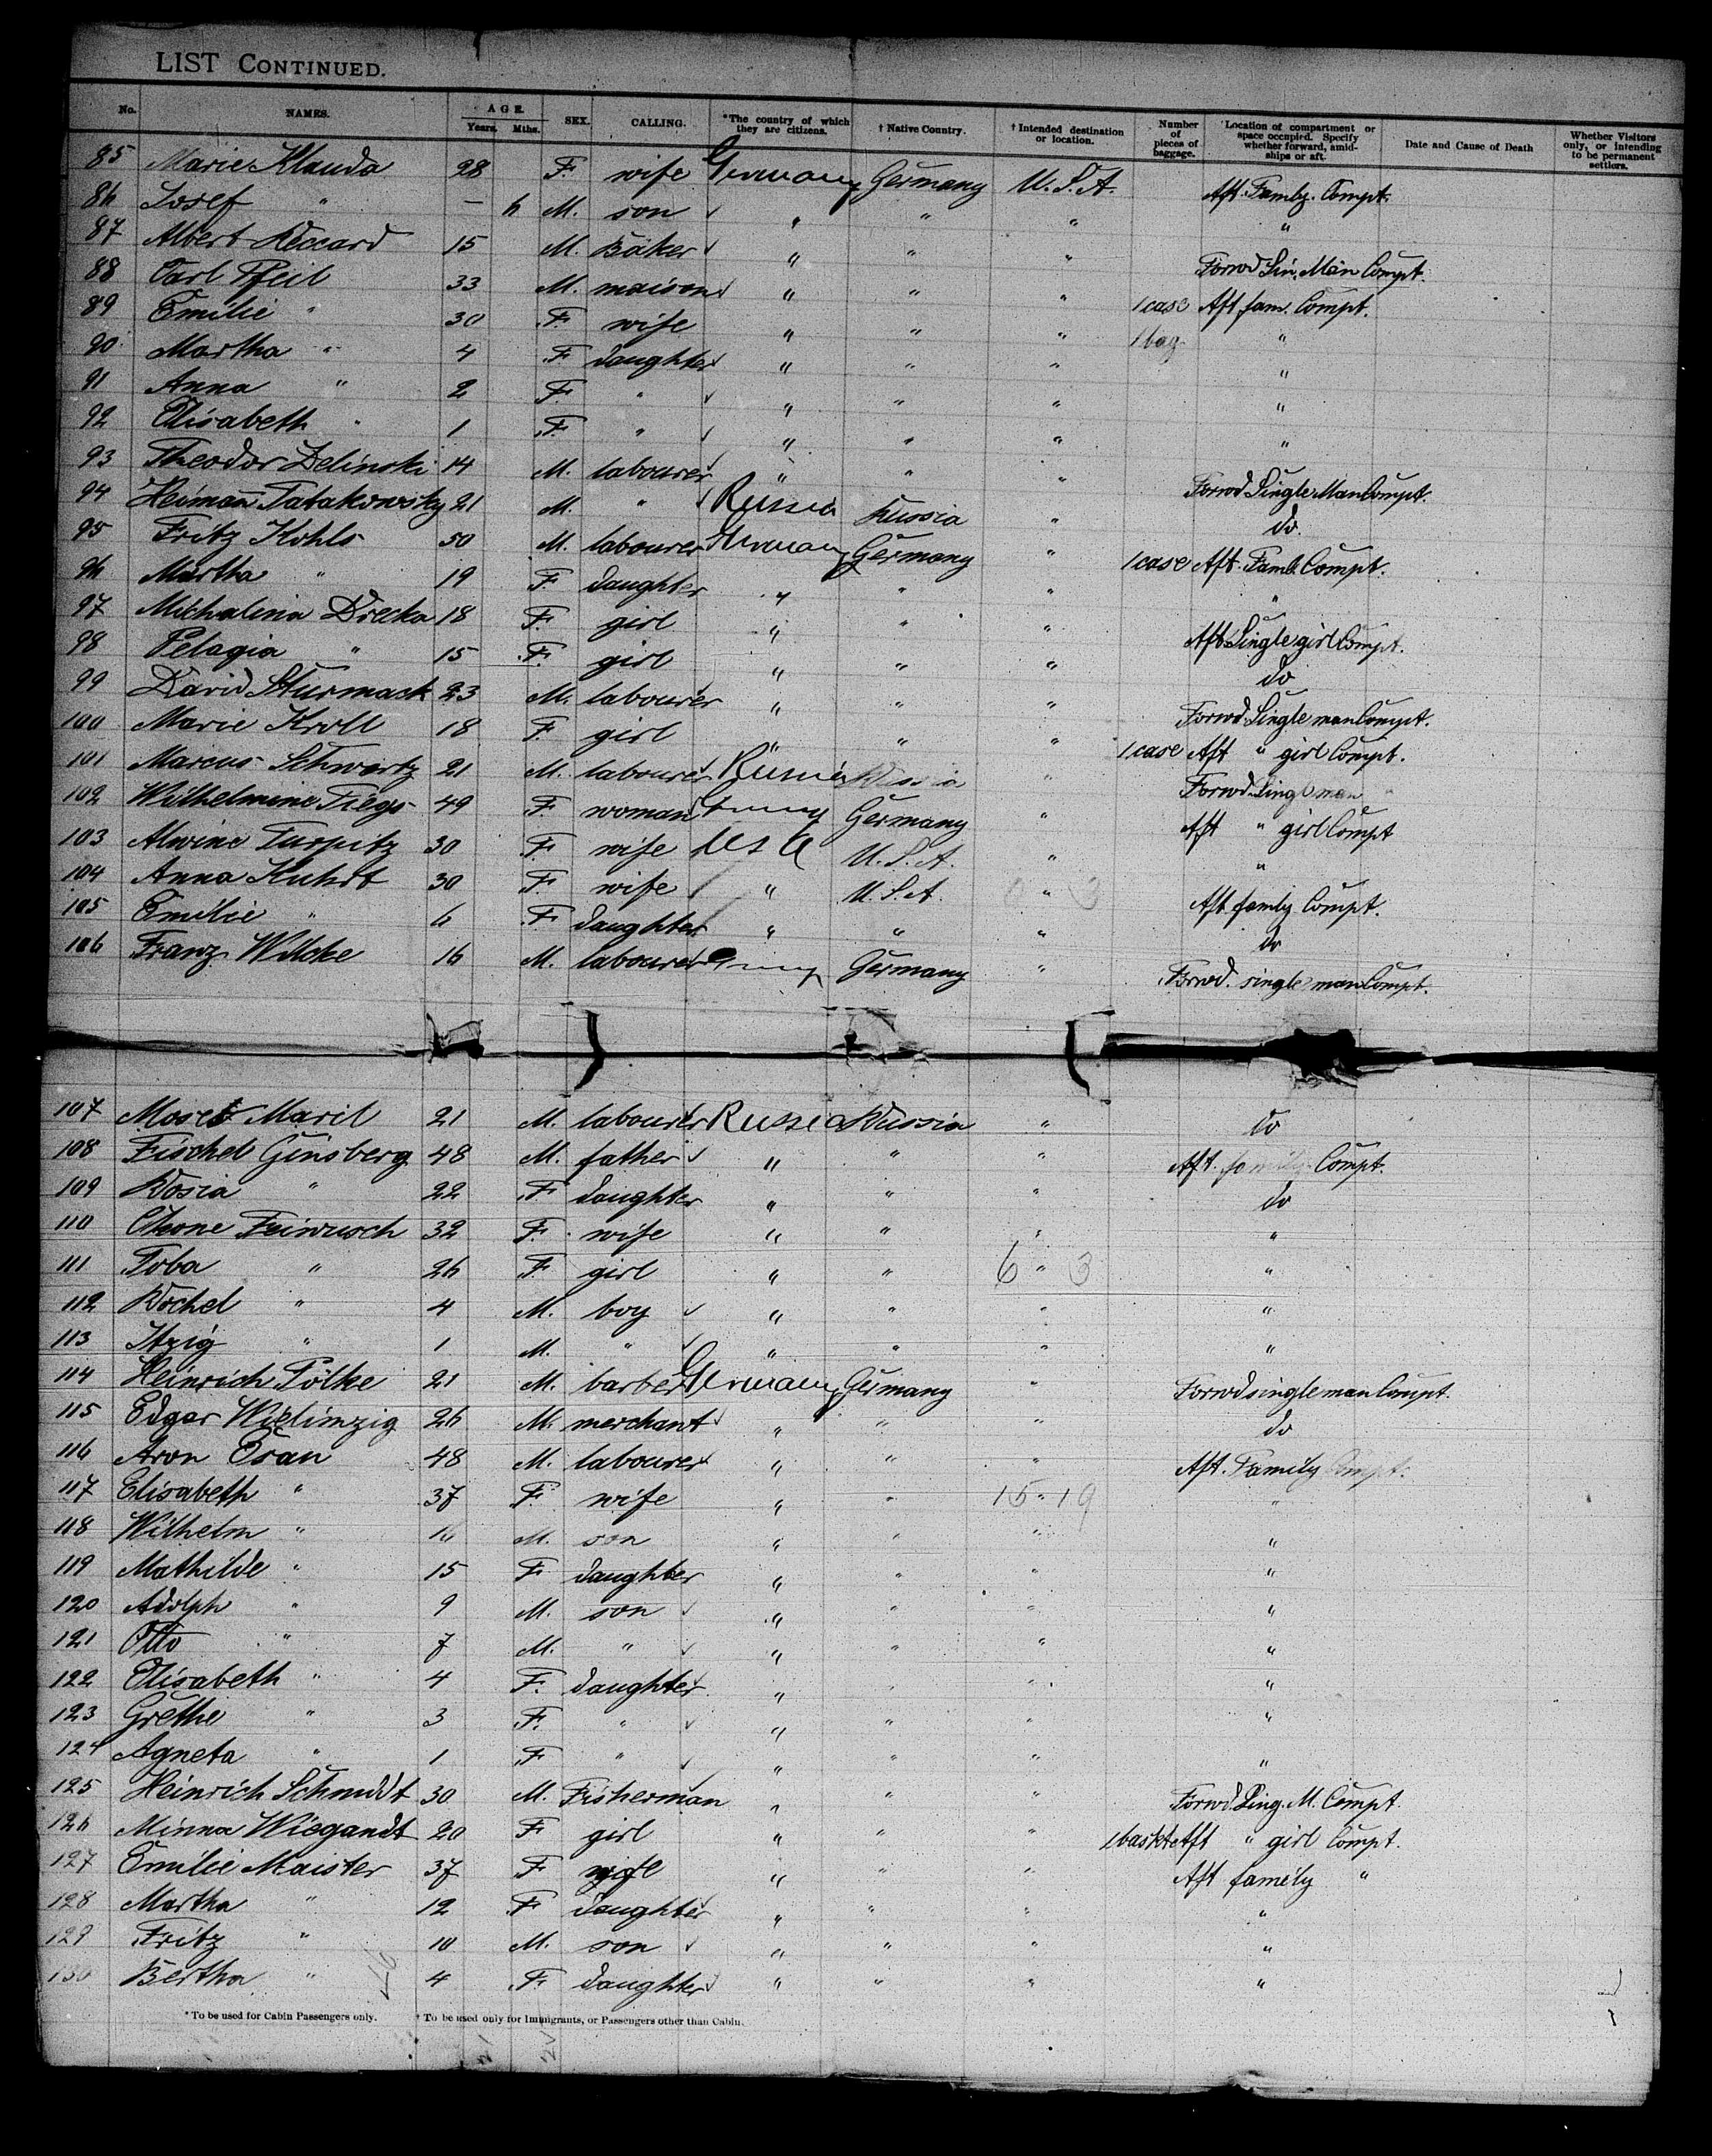 LIST CONTINUED.
No. NAMES. AGE. Years. Mths. SEX. CALLING. *The country of which they are citizens. † Native Country. † Intended destination or location. Number of pieces of baggage. Location of compartment or space occupied. Specify whether forward, amid-ships or aft. Date and Cause of Death Whether Visitors only, or intending to be permanent settlers.
85 Marie Klauda 28 F. wife Germany Germany U.S.A. Aft. Famly. Compt.
86 Josef " — 6 M. son " " " "
87 Albert Reccard 15 M. Baker " " " Forwd Sin. Man Compt.
88 Carl Pfeil 33 M. maison " " " 1 case Aft fam. Compt.
89 Emilie " 30 F. wife " " " 1 bag "
90 Martha " 4 F daughter " " " "
91 Anna " 2 F. " " " " "
92 Elisabeth " 1 F. " " " " "
93 Theodor Zelinski 14 M. labourer " " " Forwd Single Man Compt.
94 Heimann Tatakowsky 21 M. " Russia Russia " do.
95 Fritz Kohls 50 M. labourer Germany Germany " 1 case Aft. Faml. Compt.
96 Martha " 19 F. daughter " " " "
97 Michalina Drecka 18 F. girl " " " Aft. Single girl Compt.
98 Pelagia " 15 F. girl " " " do
99 David Sturmack 23 M. labourer " " " Forwd. Single man Compt.
100 Marie Kroll 18 F. girl " " " 1 case Aft " girl Compt.
101 Marcus Schwartz 21 M. labourer Russia Russia " Forwd. Single man "
102 Wilhelmine Tiegs 49 F. woman Germany Germany " Aft " girl Compt
103 Alwine Turpitz 30 F. wife USA U.S.A. " "
104 Anna Kuhrt 30 F wife " U.S.A. " Aft famly Compt.
105 Emilie " 6 F daughter " " " do
106 Franz Wilcke 16 M. labourer Germany Germany " Forwd. single man Compt.
107 Moses Maril 21 M. labourer Russia Russia " do
108 Fischel Ginsberg 48 M. father " " " Aft. family Compt.
109 Rosia " 22 F daughter " " " do
110 Chone Feiwusch 32 F. wife " " " "
111 Toba " 26 F. girl " " 6 " 3 "
112 Rochel " 4 M. boy " " " "
113 Itzig " 1 M. " " " " "
114 Heinrich Pölke 21 M. barber Germany Germany " Forwd single man Compt.
115 Edgar Wielimzig 26 M. merchant " " " do
116 Aron Esau 48 M. labourer " " " Aft. Family Compt.
117 Elisabeth " 37 F. wife " " 15 " 19 "
118 Wilhelm " 16 M. son " " " "
119 Mathilde " 15 F daughter " " " "
120 Adolph " 9 M. son " " " "
121 Otto " 7 M. " " " " "
122 Elisabeth " 4 F. daughter " " " "
123 Grethe " 3 F. " " " " "
124 Agneta " 1 F " " " " "
125 Heinrich Schmidt 30 M. Fisherman " " " Forwd Sing. M. Compt.
126 Minna Wiegandt 20 F girl " " " 1 baskt Aft " girl Compt.
127 Emilie Maister 37 F wife " " " Aft family "
128 Martha " 12 F daughter " " " "
129 Fritz " 10 M. son " " " "
130 Bertha " 4 F daughter " " " "
*To be used for Cabin Passengers only. † To be used only for Immigrants, or Passengers other than Cabin.